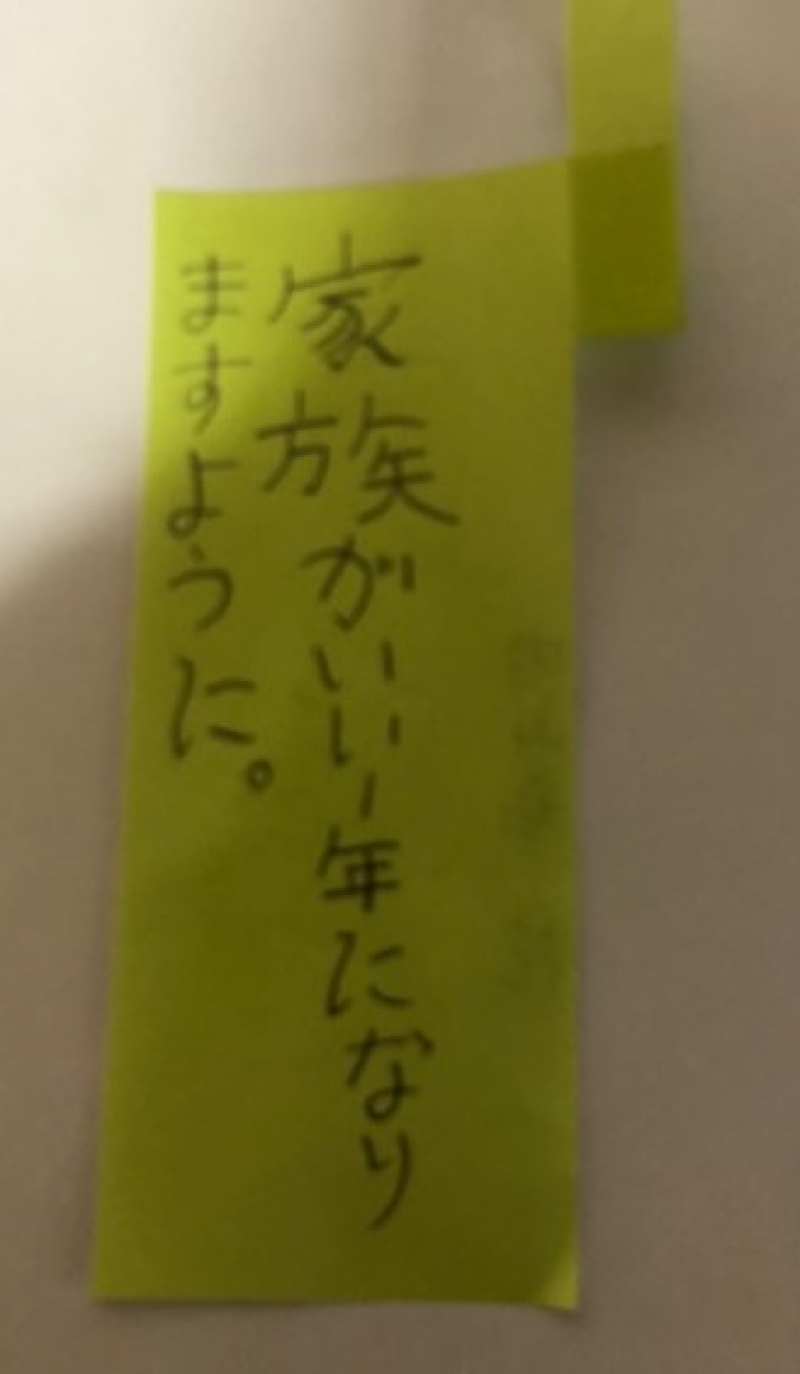 家族がいい1年になり
ますように。